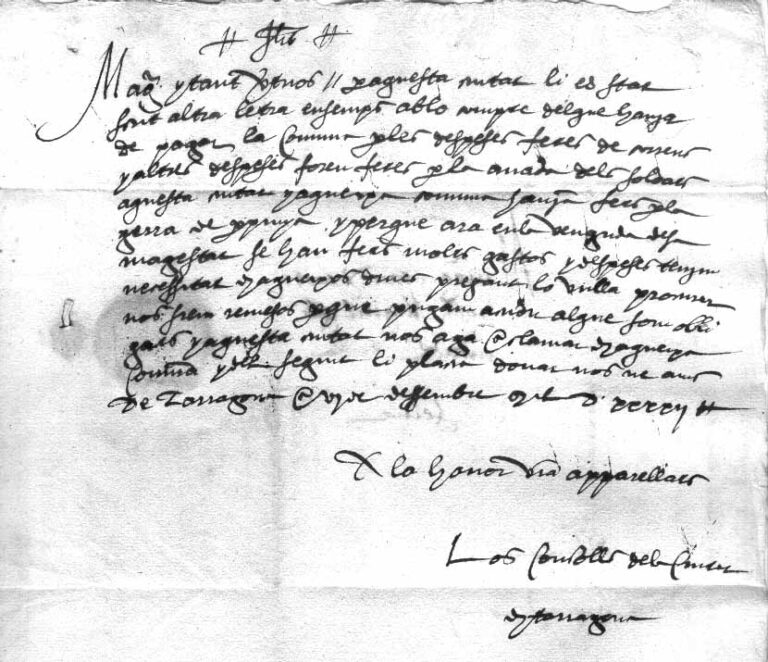 # Jhs #
Magch ytant vtuos // p aquesta ciutat li es stat
scrit altra letra ensemps ablo compte delque hauza
de pagar la Comuna p les despeses fetes de correus
y altres despeses foren fetes p la anada dels soldats
aquesta ciutat y aqueixa comuna hauja fets p la
gerra de ppinya y perque ara en la venguda desa
magestat se han fets molts gastos y despeses tenim
necessitat de aqueixos dines pregant lo vulla procurar
nos sien remesos p que pugam acudir al que som obli
gats y aquesta ciutat nos aga a clamar de aqueixa
Comuna y del seguit li placia donar nos ne avis
De Tarragona a de dessembre
A la honor vra apparellats
Los Consolls dela Ciutat
de Tarragona